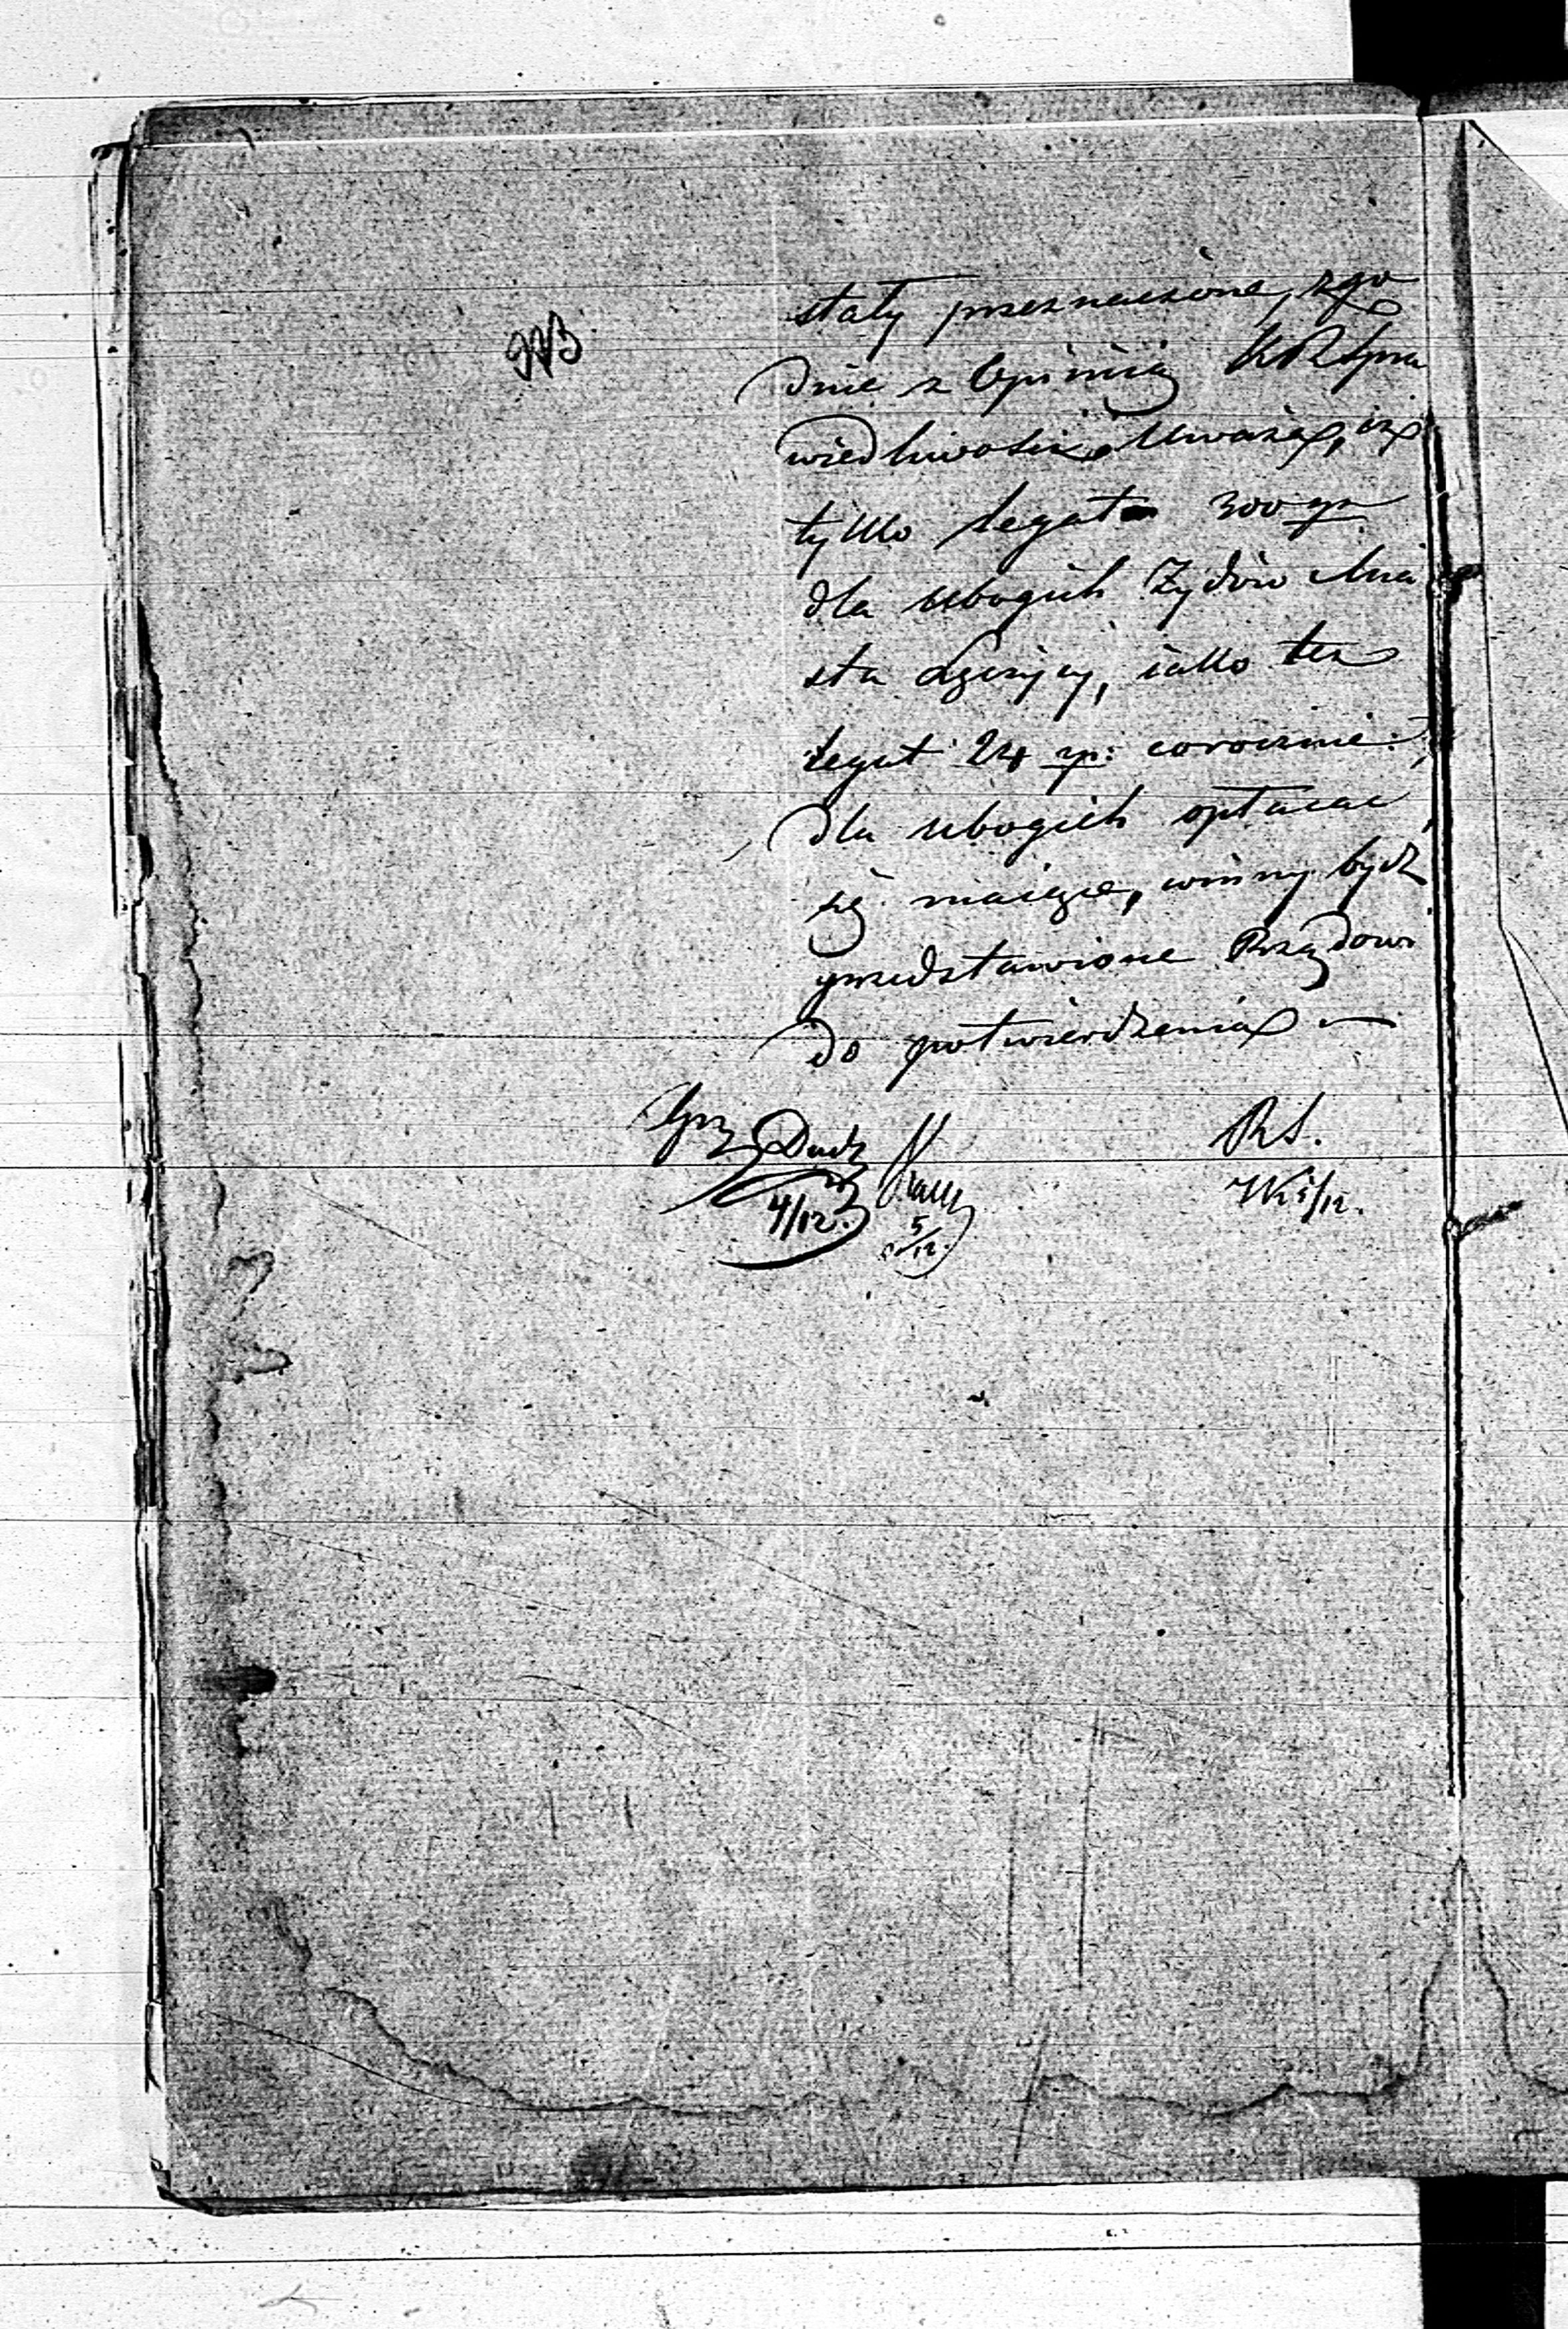 stały przeznaczone, zgo
dnie z Opinią KRSpra
wiedliwości Uważa, iż
tylko legat 300 zp
dla ubogich Żydów Mia
sta
iako też
legat 24 zp: corocznie
dla ubogich opłacać
się maiące, winny bydź
przedstawione Rządowi
do potwierdzenia —
RS.
4/12.
5/12.